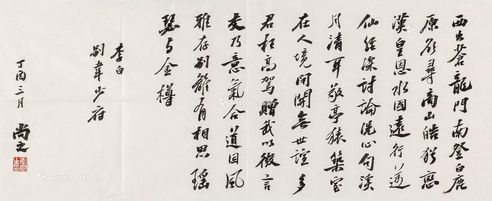 西出蒼龍門南登白鹿
原欲尋商山皓猶戀
漢皇恩水國遠行邁
仙經深討論洗心句溪
月清耳敬亭猿築室
在人境閉關無世諠多
君枉高駕贈我以微言
交乃意氣合道因風
雅存別離有相思瑤
瑟与金樽
李白
別韋少府
丁酉三月 尚之